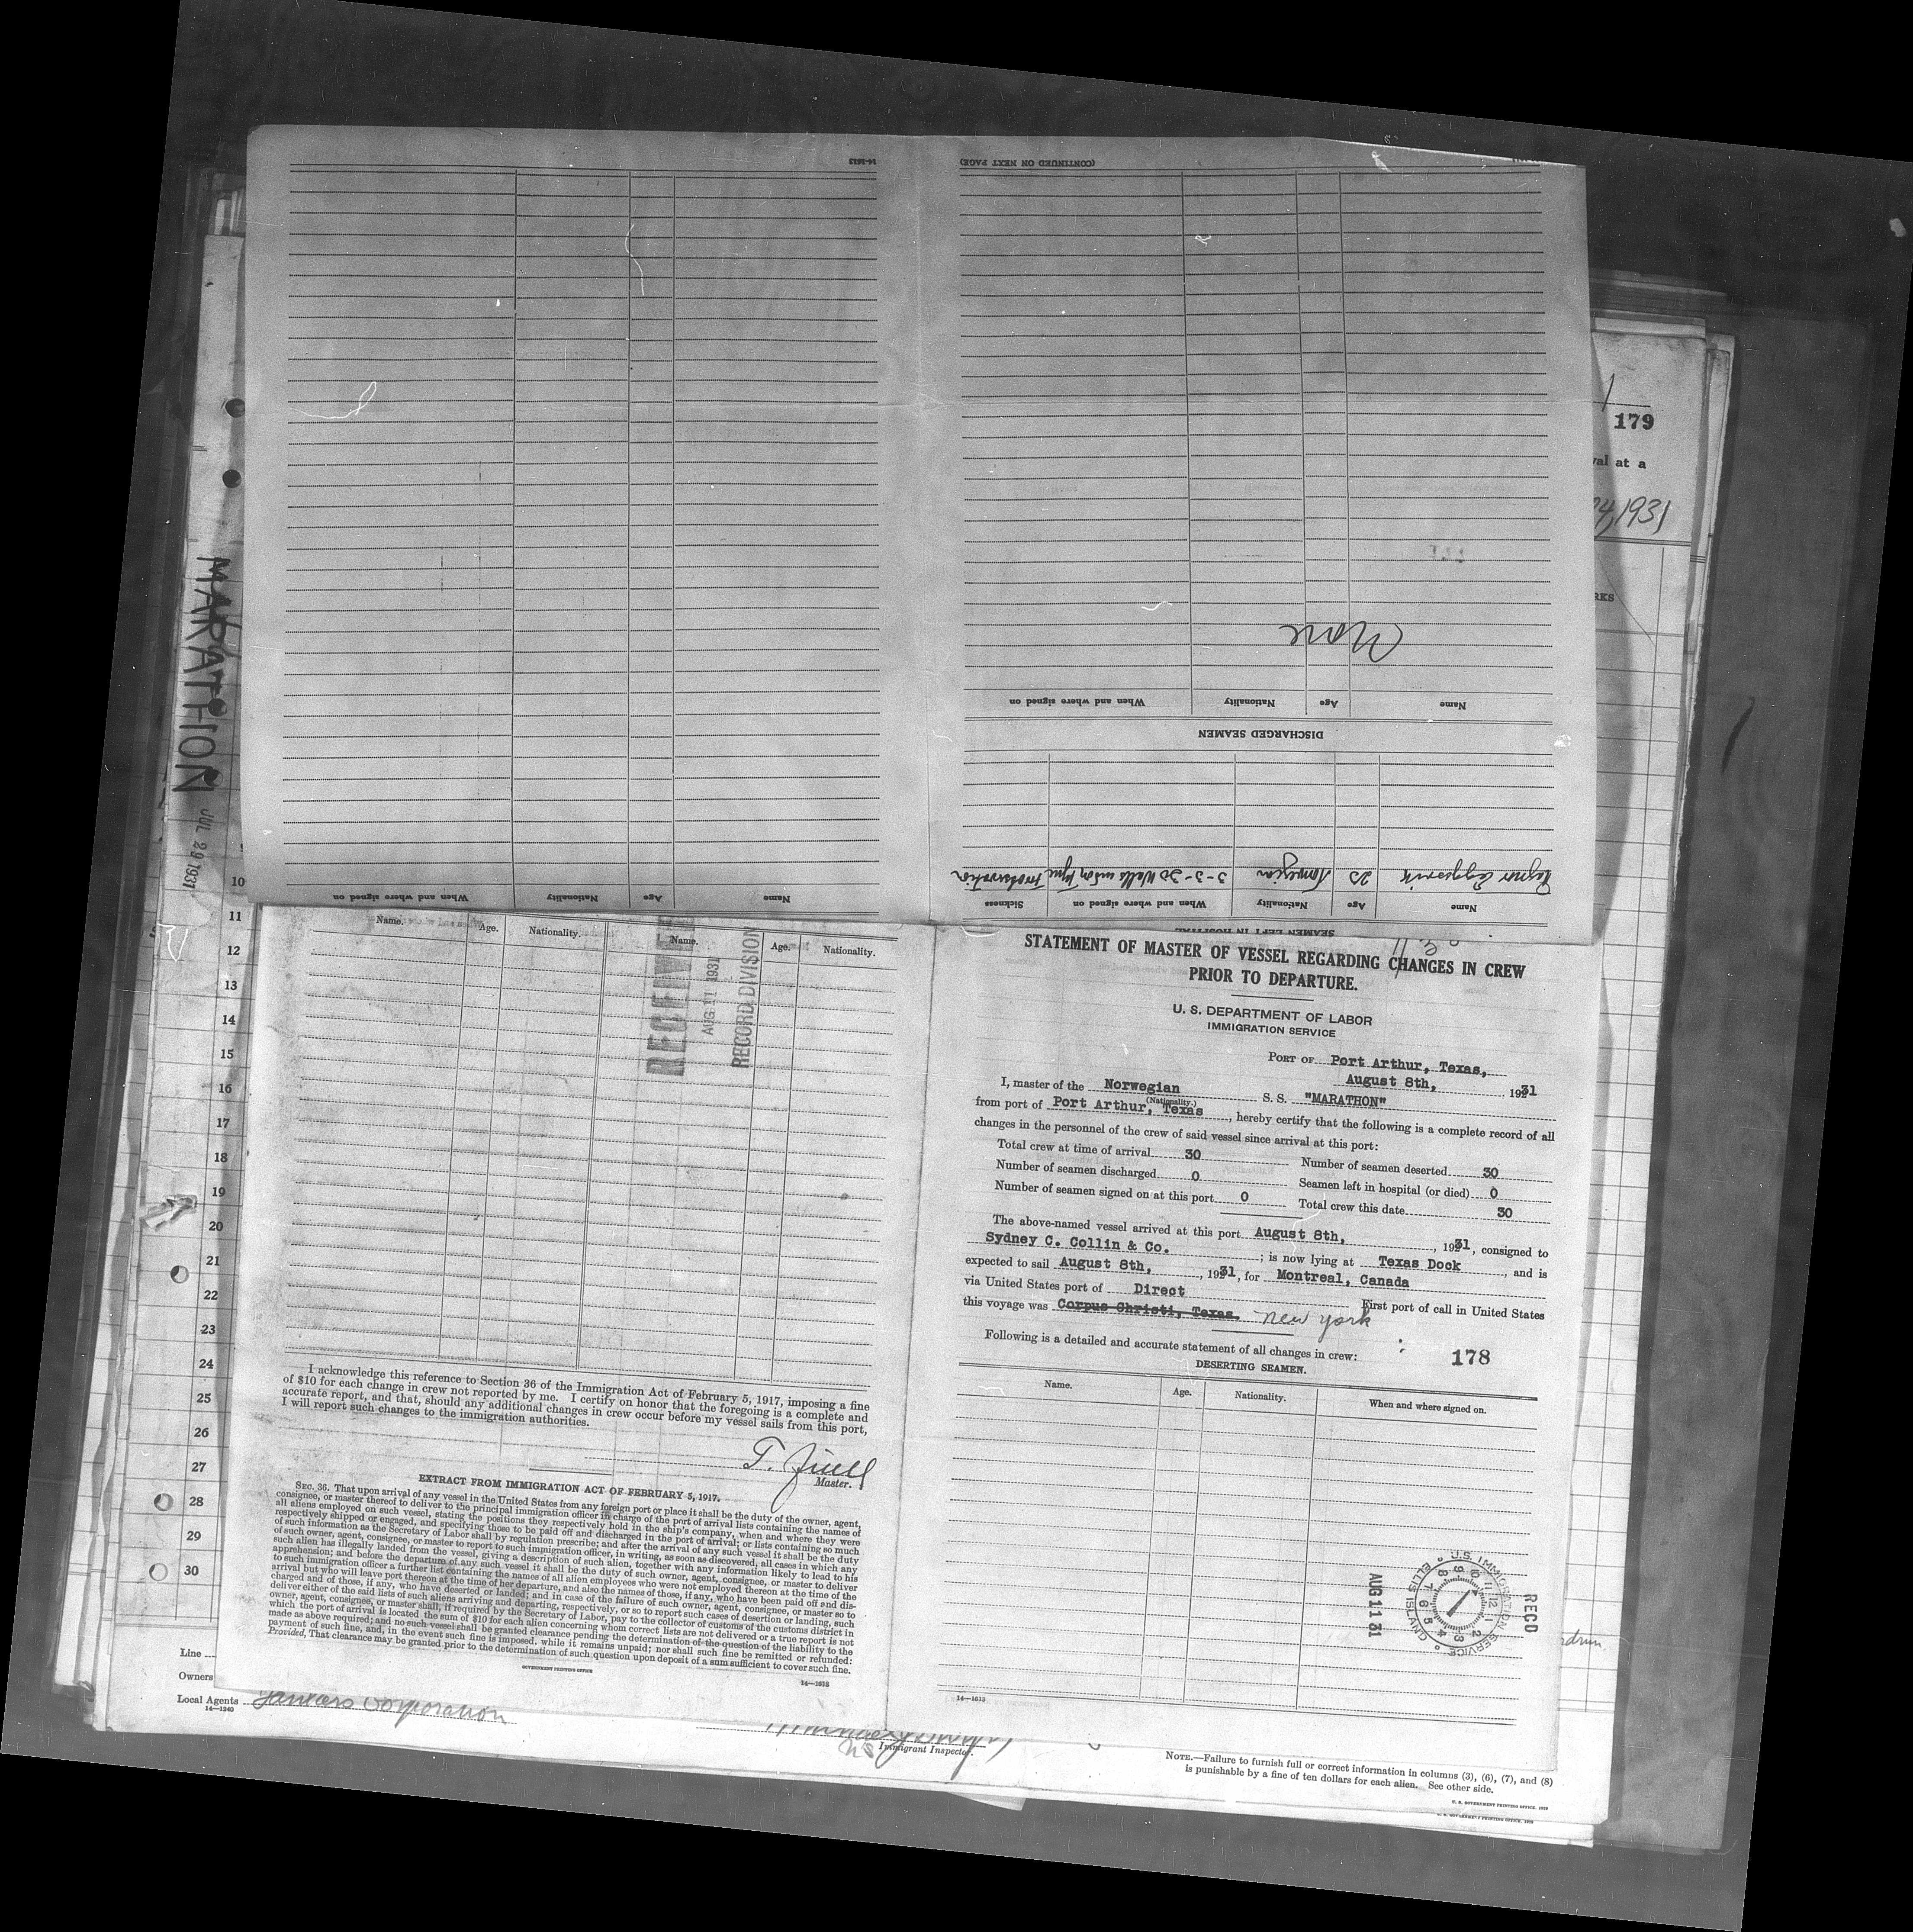 14-1613
(CONTINUED ON NEXT PAGE)
None
Name Age Nationality When and where signed on
DISCHARGED SEAMEN
25 Norwegian 3-3-30
Name Age Nationality When and where signed on Sickness
SEAMEN LEFT IN HOSPITAL
Name Age Nationality When and where signed on
179
val at a
1931
RKS
MARATHON
JUL 29 1931
10
11
12
13
14
15
16
17
18
19
20
21
22
23
24
25
26
27
28
29
30
Line
Owners
Local Agents
14—1240
Corporation
Name. Age. Nationality. Name. Age. Nationality.
RECEIVED
AUG 11 1931
RECORD DIVISION
I acknowledge this reference to Section 36 of the Immigration Act of February 5, 1917, imposing a fine
of $10 for each change in crew not reported by me. I certify on honor that the foregoing is a complete and
accurate report, and that, should any additional changes in crew occur before my vessel sails from this port,
I will report such changes to the immigration authorities.
Master.
EXTRACT FROM IMMIGRATION ACT OF FEBRUARY 5, 1917.
SEC. 36. That upon arrival of any vessel in the United States from any foreign port or place it shall be the duty of the owner, agent,
consignee, or master thereof to deliver to the principal immigration officer in charge of the port of arrival lists containing the names of
all aliens employed on such vessel, stating the positions they respectively hold in the ship's company, when and where they were
respectively shipped or engaged, and specifying those to be paid off and discharged in the port of arrival; or lists containing so much
of such information as the Secretary of Labor shall by regulation prescribe; and after the arrival of any such vessel it shall be the duty
of such owner, agent, consignee, or master to report to such immigration officer, in writing, as soon as discovered, all cases in which any
such alien has illegally landed from the vessel, giving a description of such alien, together with any information likely to lead to his
apprehension; and before the departure of any such vessel it shall be the duty of such owner, agent, consignee, or master to deliver
to such immigration officer a further list containing the names of all alien employees who were not employed thereon at the time of the
arrival but who will leave port thereon at the time of her departure, and also the names of those, if any, who have been paid off and dis-
charged and of those, if any, who have deserted or landed; and in case of the failure of such owner, agent, consignee, or master so to
deliver either of the said lists of such aliens arriving and departing, respectively, or so to report such cases of desertion or landing, such
owner, agent, consignee, or master shall, if required by the Secretary of Labor, pay to the collector of customs of the customs district in
which the port of arrival is located the sum of $10 for each alien concerning whom correct lists are not delivered or a true report is not
made as above required; and no such vessel shall be granted clearance pending the determination of the question of the liability to the
payment of such fine, and, in the event such fine is imposed, while it remains unpaid; nor shall such fine be remitted or refunded:
Provided, That clearance may be granted prior to the determination of such question upon deposit of a sum sufficient to cover such fine.
GOVERNMENT PRINTING OFFICE
14—1613
STATEMENT OF MASTER OF VESSEL REGARDING CHANGES IN CREW
PRIOR TO DEPARTURE.
U. S. DEPARTMENT OF LABOR
IMMIGRATION SERVICE
PORT OF Port Arthur, Texas,
August 8th, , 1931
I, master of the Norwegian S. S. "MARATHON"
(Nationality.)
from port of Port Arthur, Texas , hereby certify that the following is a complete record of all
changes in the personnel of the crew of said vessel since arrival at this port:
Total crew at time of arrival 30 Number of seamen deserted 30
Number of seamen discharged 0 Seamen left in hospital (or died) 0
Number of seamen signed on at this port 0 Total crew this date 30
The above-named vessel arrived at this port August 8th, , 1931, consigned to
Sydney C. Collin & Co. ; is now lying at Texas Dock , and is
expected to sail August 8th, , 1931, for Montreal, Canada
via United States port of Direct First port of call in United States
this voyage was Corpus Christi, Texas. New York
Following is a detailed and accurate statement of all changes in crew:
178
DESERTING SEAMEN.
Name. Age. Nationality. When and where signed on.
U. S. IMMIGRATION SERVICE ELLIS ISLAND
REC'D
AUG 11 31
14—1613
Immigrant Inspector.
NOTE.—Failure to furnish full or correct information in columns (3), (6), (7), and (8)
is punishable by a fine of ten dollars for each alien. See other side.
U. S. GOVERNMENT PRINTING OFFICE